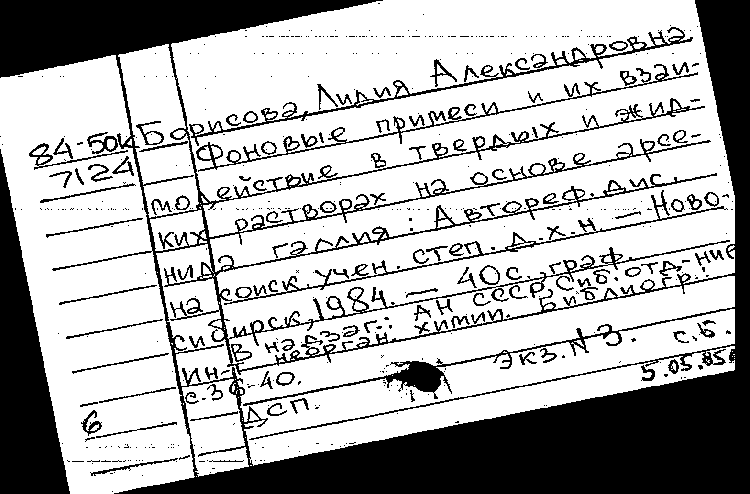 84-50к Борисова, Лидия Александровна
7124 Фоновые примеси и их взаи-
модействие в твердых и жид-
ких растворах на основе арсе-
нида галлия: Автореф. дис.
на соиск. учен. степ. д.х.н. — Ново-
сибирск, 1984. — 40 с., граф.
В надзаг.: АН СССР, Сиб. отд-ние
Ин-т неорган. химии. Библиогр.:
с. 36-40.
Экз. N 3. с.б.
6 ДСП. 5.05.85